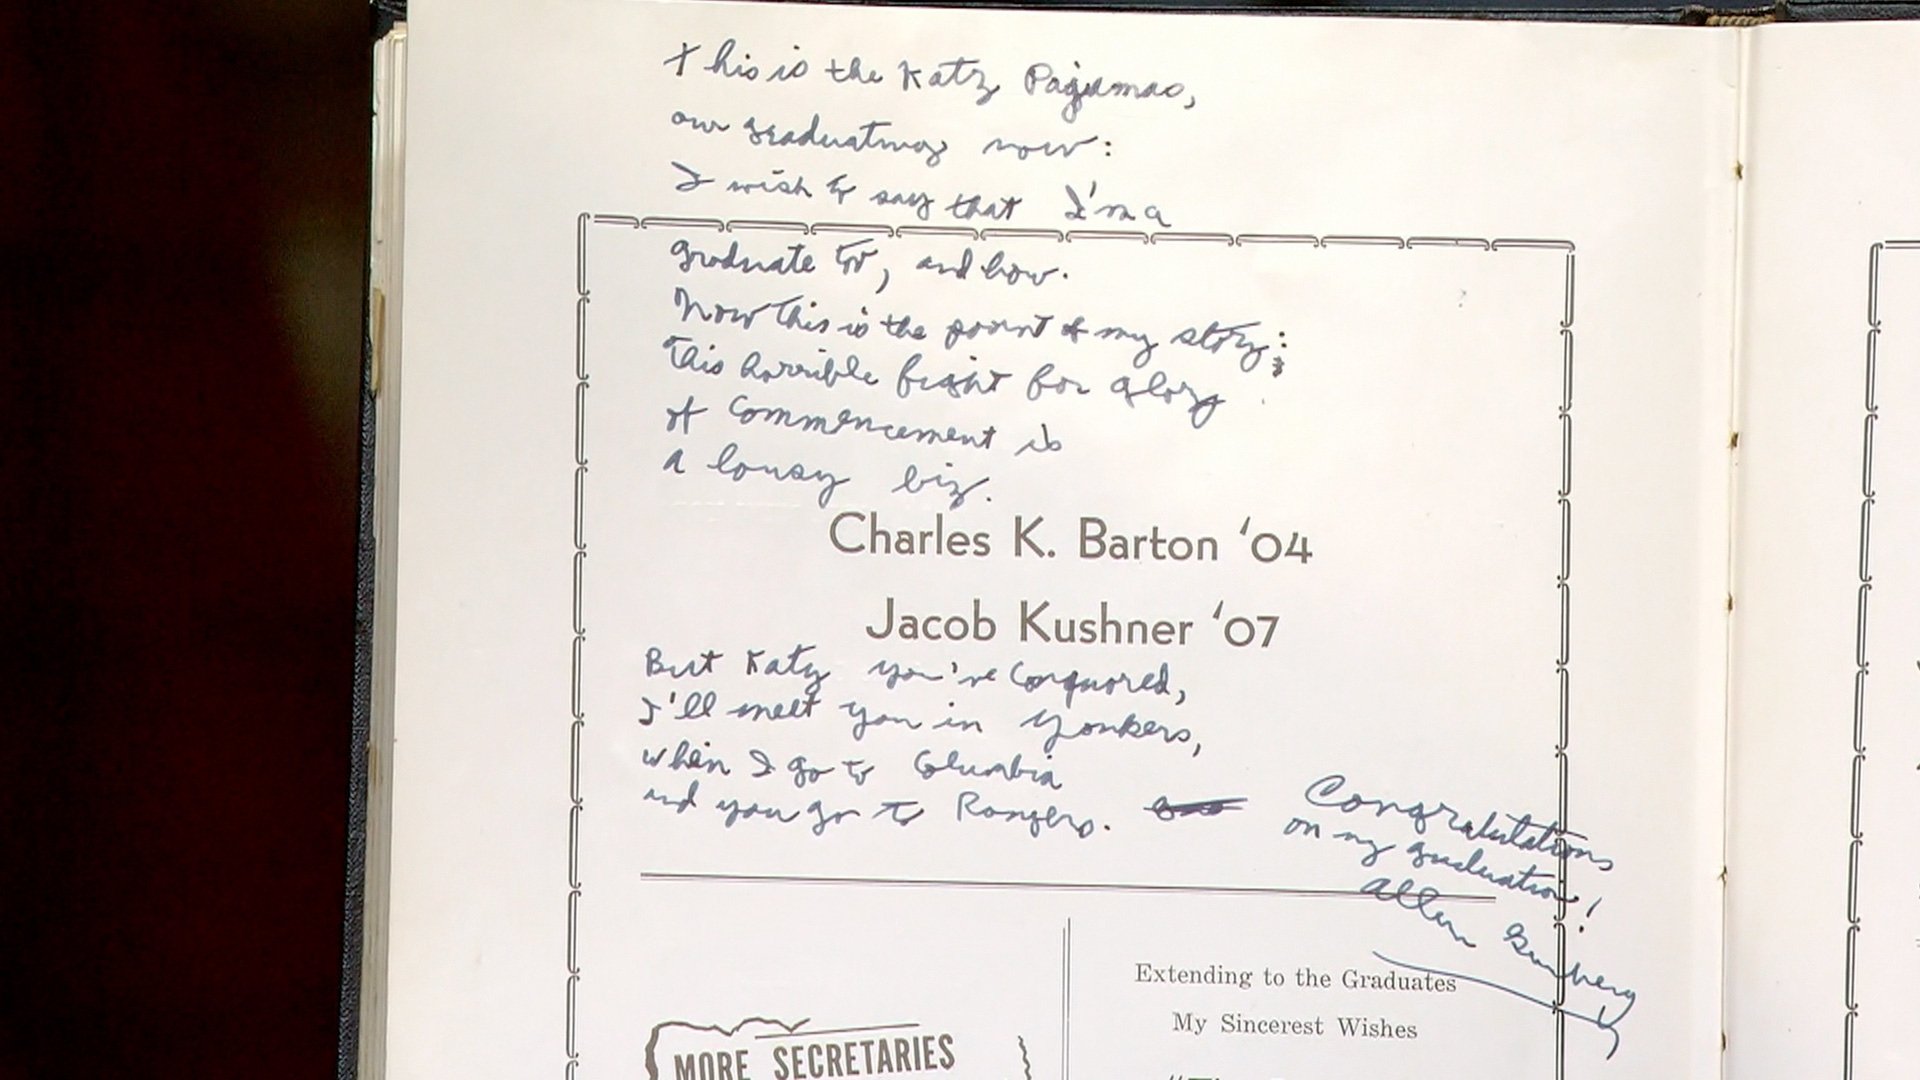 This is the Katz Pagamas,
our graduating now:
I wish to say that I'm a
graduate too, and how.
Now this is the point of my story:
this horrible fight for glory
of Commencement is
a lousy biz.
Charles K. Barton '04
Jacob Kushner '07
But Katz you've Conquored,
I'll meet you in Yonkers,
when I go to Columbia
and you go to Rongers.
Congratulations
on my graduation!
Allen Ginsberg
Extending to the Graduates
My Sincerest Wishes
MORE SECRETARIES